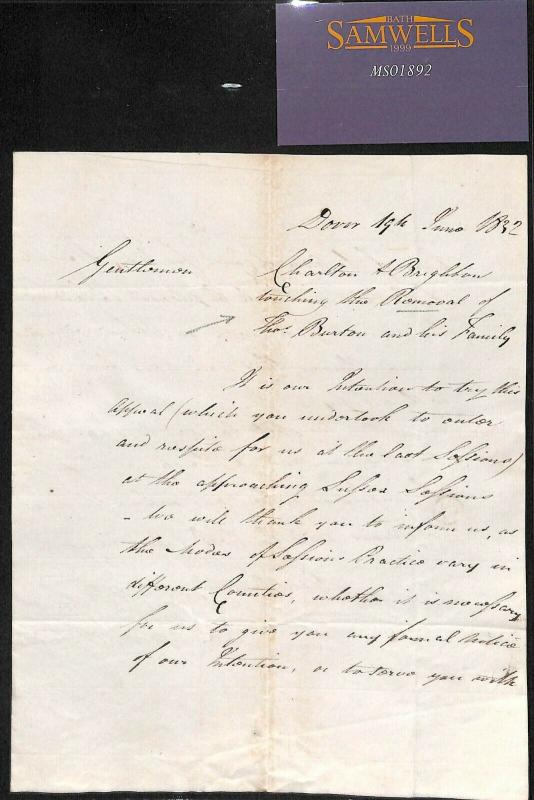 BATH
SAMWELLS
1999
MS01892
Dover 19th June 1832
Gentlemen
Charlton & Brighton
touching the Removal of
Thos. Burton and his Family
It is our Intention to try this
appeal (which you undertook to enter
and respite for us at the last Sessions)
at the approaching Sussex Sessions
- We will thank you to inform us, as
the Modes of Sessions Practice vary in
different Counties, whether it is necessary
for us to give you any formal notice
of our Intention, or to serve you with